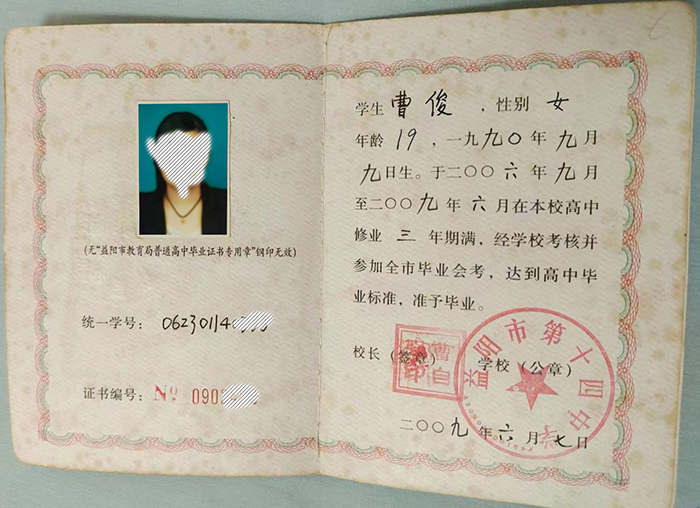 (无“益阳市教育局普通高中毕业证书专用章”钢印无效)
统一学号: 06230114
证书编号: No 090
学生 曹俊 ,性别 女
年龄 19 ,一九九〇年九月
九日生。于二〇〇六年九月
至二〇〇九年六月在本校高中
修业 三 年期满,经学校考核并
参加全市毕业会考,达到高中毕
业标准,准予毕业。
校长(签章) 学校(公章)
益阳市第十四中学
二〇〇九年六月七日